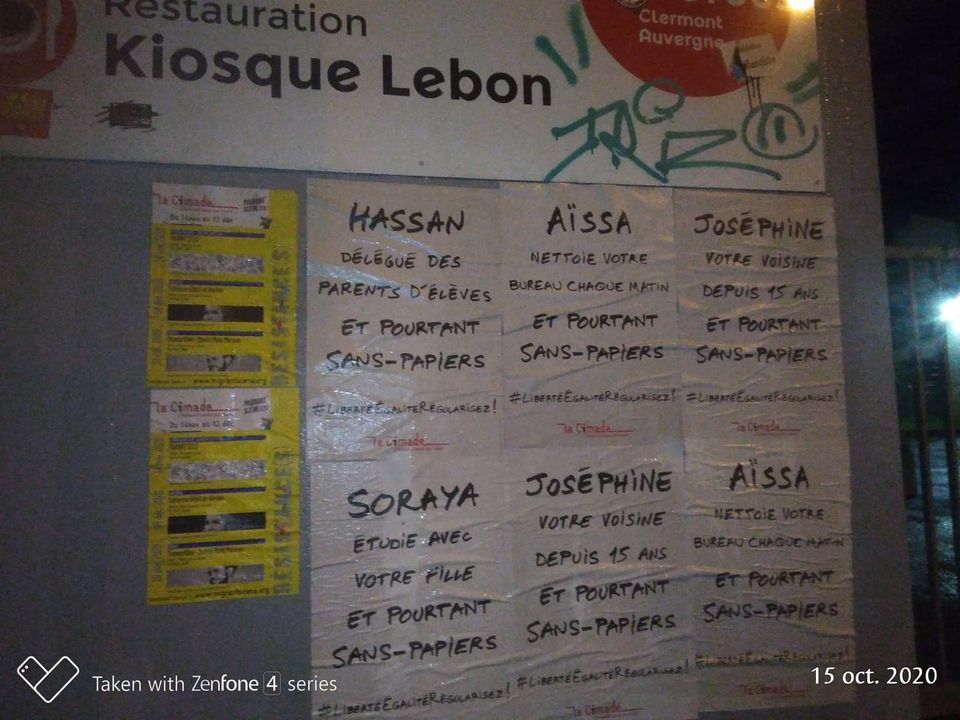 Restauration
Kiosque Lebon
Clermont
Auvergne
la Cimade
MIGRANT
SCÈNE
Du 14 nov au 12 déc
www.migrantscene.org
la Cimade
MIGRANT
SCÈNE
Du 14 nov au 12 déc
www.migrantscene.org
HASSAN
DÉLÉGUÉ DES
PARENTS D'ÉLÈVES
ET POURTANT
SANS-PAPIERS
#LIBERTÉEGALITÉRÉGULARISEZ!
la Cimade
AÏSSA
NETTOIE VOTRE
BUREAU CHAQUE MATIN
ET POURTANT
SANS-PAPIERS
#LIBERTÉEGALITÉRÉGULARISEZ!
la Cimade
JOSÉPHINE
VOTRE VOISINE
DEPUIS 15 ANS
ET POURTANT
SANS-PAPIERS
#LIBERTÉEGALITÉRÉGULARISEZ!
la Cimade
SORAYA
ÉTUDIE AVEC
VOTRE FILLE
ET POURTANT
SANS-PAPIERS
#LIBERTÉEGALITÉRÉGULARISEZ!
JOSÉPHINE
VOTRE VOISINE
DEPUIS 15 ANS
ET POURTANT
SANS-PAPIERS
#LIBERTÉEGALITÉRÉGULARISEZ!
la Cimade
AÏSSA
NETTOIE VOTRE
BUREAU CHAQUE MATIN
ET POURTANT
SANS-PAPIERS
#LIBERTÉEGALITÉRÉGULARISEZ!
la Cimade
Taken with Zenfone 4 series
15 oct. 2020